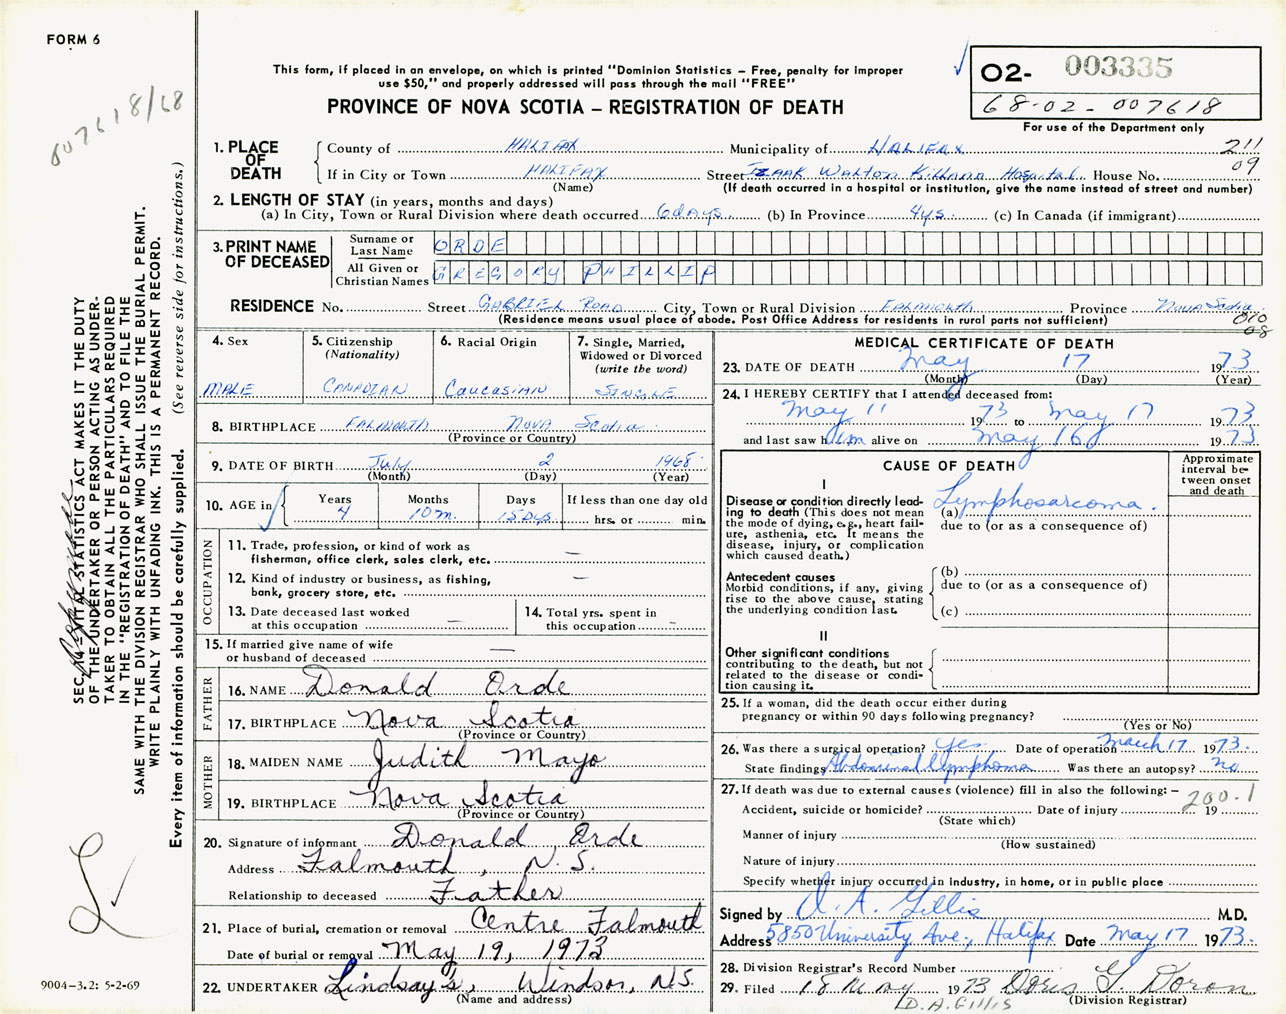 FORM 6
007618/68
This form, if placed in an envelope, on which is printed "Dominion Statistics – Free, penalty for improper
use $50," and properly addressed will pass through the mail "FREE"
PROVINCE OF NOVA SCOTIA – REGISTRATION OF DEATH
02- 003335
68-02-007618
For use of the Department only
211
09
1. PLACE OF DEATH
County of HALIFAX Municipality of HALIFAX
If in City or Town HALIFAX Street IZAAK WALTON KILLAM Hospital House No.
(Name) (If death occurred in a hospital or institution, give the name instead of street and number)
2. LENGTH OF STAY (in years, months and days)
(a) In City, Town or Rural Division where death occurred 6 days (b) In Province 4ys (c) In Canada (if immigrant)
3. PRINT NAME OF DECEASED
Surname or Last Name ORDE
All Given or Christian Names GREGORY PHILLIP
RESIDENCE No. Street GABRIEL ROAD City, Town or Rural Division FALMOUTH Province NOVA Scotia
(Residence means usual place of abode. Post Office Address for residents in rural parts not sufficient)
010
08
4. Sex
MALE
5. Citizenship
(Nationality)
CANADIAN
6. Racial Origin
CAUCASIAN
7. Single, Married,
Widowed or Divorced
(write the word)
SINGLE
8. BIRTHPLACE FALMOUTH NOVA SCOTIA
(Province or Country)
9. DATE OF BIRTH July 2 1968
(Month) (Day) (Year)
10. AGE in
Years Months Days If less than one day old
4 10 m. 15 Dys. hrs. or min.
OCCUPATION
11. Trade, profession, or kind of work as
fisherman, office clerk, sales clerk, etc. —
12. Kind of industry or business, as fishing,
bank, grocery store, etc. —
13. Date deceased last worked
at this occupation —
14. Total yrs. spent in
this occupation –
15. If married give name of wife
or husband of deceased —
FATHER
16. NAME Donald Orde
17. BIRTHPLACE Nova Scotia
(Province or Country)
MOTHER
18. MAIDEN NAME Judith Mayo
19. BIRTHPLACE Nova Scotia
(Province or Country)
20. Signature of informant Donald Orde
Address Falmouth, N.S.
Relationship to deceased Father
21. Place of burial, cremation or removal Centre Falmouth
Date of burial or removal May 19, 1973
22. UNDERTAKER Lindsay's, Windsor, N.S.
(Name and address)
MEDICAL CERTIFICATE OF DEATH
23. DATE OF DEATH May 17 1973
(Month) (Day) (Year)
24. I HEREBY CERTIFY that I attended deceased from:
May 11 1973 to May 17 1973
and last saw him alive on May 16 1973
CAUSE OF DEATH
Approximate
interval be-
tween onset
and death
I
Disease or condition directly lead-
ing to death (This does not mean
the mode of dying, e.g., heart fail-
ure, asthenia, etc. It means the
disease, injury, or complication
which caused death.)
(a) Lymphosarcoma.
due to (or as a consequence of)
Antecedent causes
Morbid conditions, if any, giving
rise to the above cause, stating
the underlying condition last.
(b)
due to (or as a consequence of)
(c)
II
Other significant conditions
contributing to the death, but not
related to the disease or condi-
tion causing it.
25. If a woman, did the death occur either during
pregnancy or within 90 days following pregnancy?
(Yes or No)
26. Was there a surgical operation? Yes Date of operation March 17 1973.
State findings Abdominal Lymphoma Was there an autopsy? No
27. If death was due to external causes (violence) fill in also the following: –
200.1
Accident, suicide or homicide? Date of injury 19
(State which)
Manner of injury
(How sustained)
Nature of injury
Specify whether injury occurred in industry, in home, or in public place
Signed by D. A. Gillis M.D.
Address 5850 University Ave., Halifax Date May 17 1973.
28. Division Registrar's Record Number
29. Filed 18 May 1973 Doris G. Doron
D.A. Gillis (Division Registrar)
SEC. 14 – VITAL STATISTICS ACT MAKES IT THE DUTY
OF THE UNDERTAKER OR PERSON ACTING AS UNDER-
TAKER TO OBTAIN ALL THE PARTICULARS REQUIRED
IN THE "REGISTRATION OF DEATH" AND TO FILE THE
SAME WITH THE DIVISION REGISTRAR WHO SHALL ISSUE THE BURIAL PERMIT.
WRITE PLAINLY WITH UNFADING INK. THIS IS A PERMANENT RECORD.
Every item of information should be carefully supplied. (See reverse side for instructions.)
9004-3.2: 5-2-69